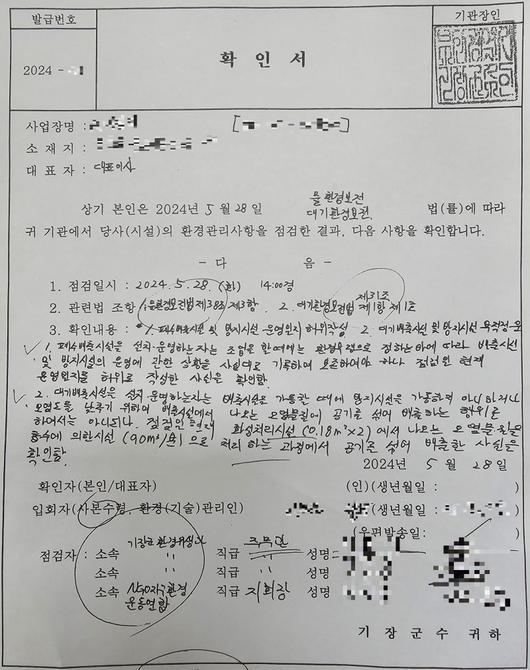 발급번호
확 인 서
기관장인
2024 -
사업장명 :
소 재 지 :
대 표 자 : 대표이사
물환경보전
상기 본인은 2024년 5 월 28 일 대기환경보전 법(률)에 따라
귀 기관에서 당사(시설)의 환경관리사항을 점검한 결과, 다음 사항을 확인합니다.
- 다 음 -
1. 점검일시 : 2024. 5. 28. (화) 14:00경
2. 관련법 조항 : 물환경보전법 제38조 제3항. 2. 대기환경보전법 제31조 제1항 제1호
3. 확인내용 : 1. 폐수배출시설 및 방지시설 운영일지 허위작성 2. 대기배출시설 및 방지시설
1. 폐수배출시설을 설치·운영하는 자는 조업을 할 때에는 환경부령으로 정하는 바에 따라 배출시설
및 방지시설의 운영에 관한 상황을 사실대로 기록하여 보존하여야 하나 점검일 현재
운영일지를 허위로 작성한 사실을 확인함.
2. 대기배출시설을 설치·운영하는 자는 배출시설을 가동할 때에 방지시설을 가동하지 아니하거나
오염도를 낮추기 위하여 배출시설에서 나오는 오염물질에 공기를 섞어 배출하는 행위를
하여서는 아니되나, 점검일 현재 시설(0.18m³×2)에서 나오는 오염물질을
흡수에 의한시설 (90m³/분)으로 처리하는 과정에서 공기를 섞어 배출한 사실을
확인함.
2024년 5 월 28 일
확인자(본인/대표자) (인)(생년월일 : )
입회자(사본수령, 환경(기술)관리인) (생년월일 : )
(우편발송일: )
점검자 : 소속 기장군 환경위생과 직급 주무관 성명
소속 〃 직급 〃 성명
소속 〃 직급 〃 성명
소속 NGO지구환경운동연합 직급 지회장 성명
기 장 군 수 귀 하